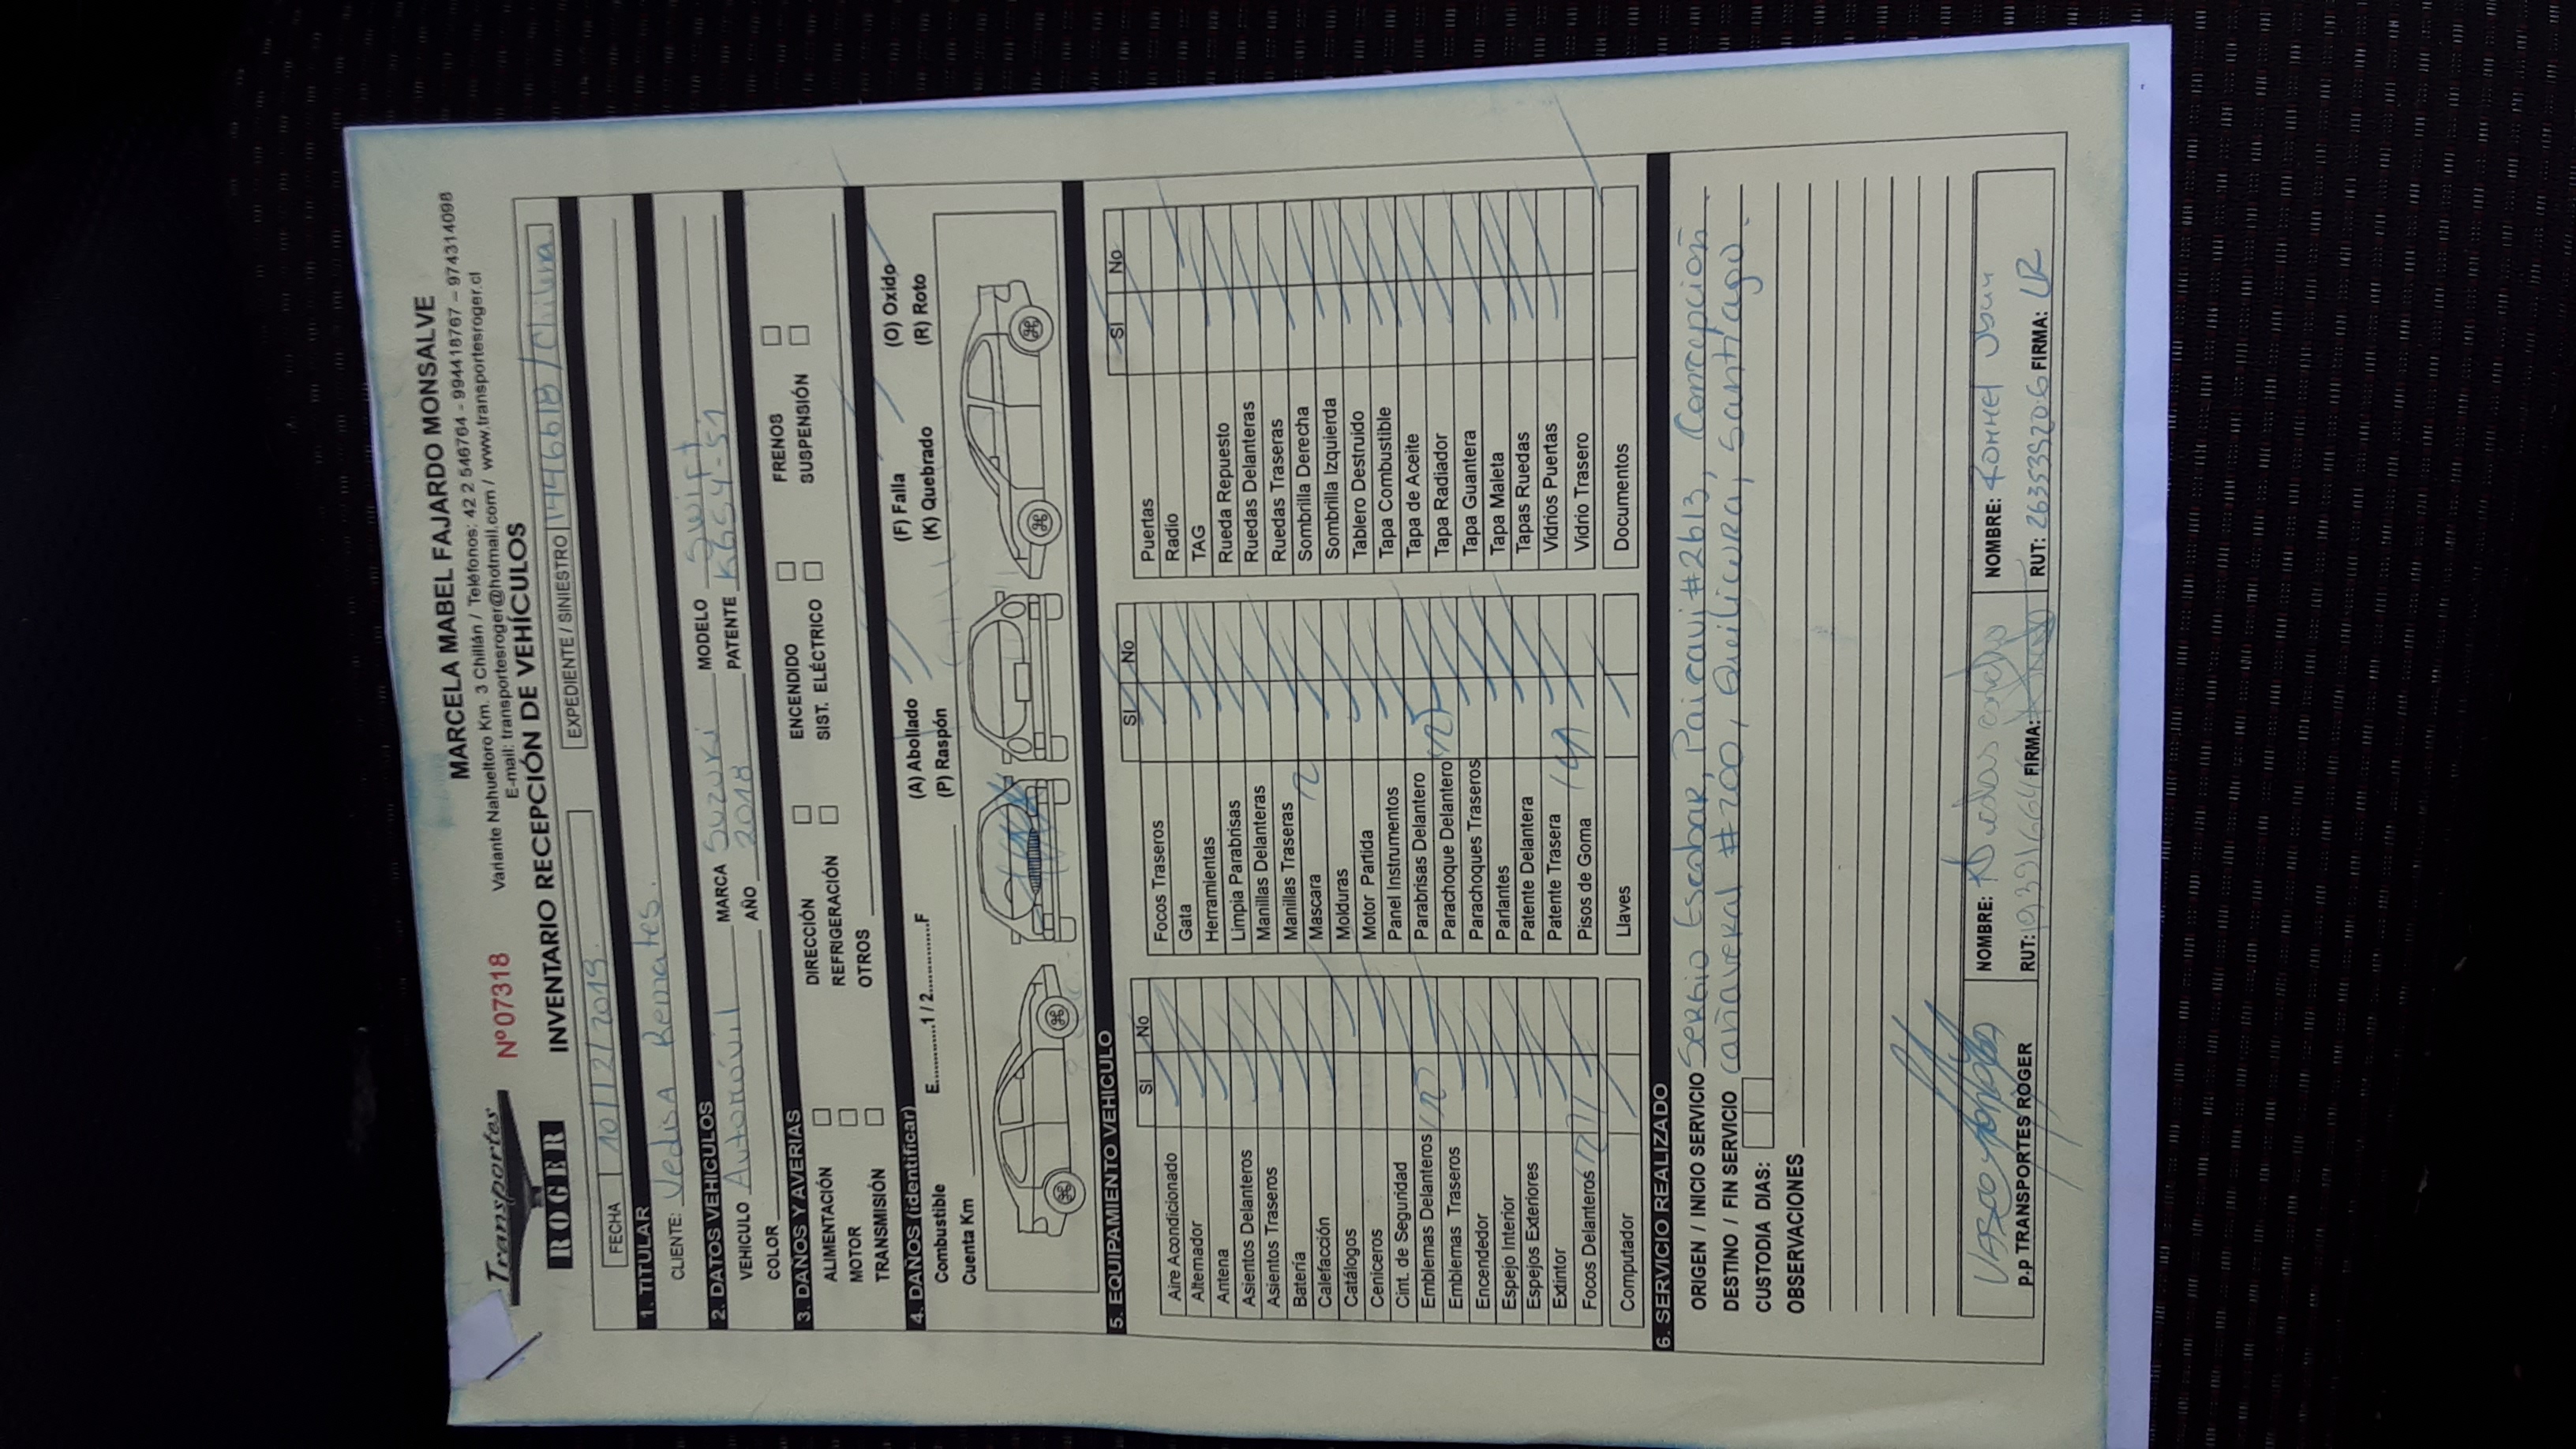 Transportes
ROGER
Nº07318
MARCELA MABEL FAJARDO MONSALVE
Variante Nahueltoro Km. 3 Chillán / Teléfonos: 42 2 546764 - 994418767 – 974314098
E-mail: transportesroger@hotmail.com / www.transportesroger.cl
INVENTARIO RECEPCIÓN DE VEHÍCULOS
FECHA 10/12/2019. EXPEDIENTE / SINIESTRO
1. TITULAR
CLIENTE: Vedisa Remates.
2. DATOS VEHICULOS
VEHICULO Automóvil MARCA Suzuki MODELO Swift.
COLOR AÑO 2018 PATENTE
3. DAÑOS Y AVERIAS
ALIMENTACIÓN DIRECCIÓN ENCENDIDO FRENOS
MOTOR REFRIGERACIÓN SIST. ELÉCTRICO SUSPENSIÓN
TRANSMISIÓN OTROS
4. DAÑOS (identificar)
Combustible E............1 / 2...............F (A) Abollado (F) Falla (O) Oxido
Cuenta Km (P) Raspón (K) Quebrado (R) Roto
5. EQUIPAMIENTO VEHICULO
SI No
Aire Acondicionado
Alternador
Antena
Asientos Delanteros
Asientos Traseros
Batería
Calefacción
Catálogos
Ceniceros
Cint. de Seguridad
Emblemas Delanteros
Emblemas Traseros
Encendedor
Espejo Interior
Espejos Exteriores
Extintor
Focos Delanteros
Computador
SI No
Focos Traseros
Gata
Herramientas
Limpia Parabrisas
Manillas Delanteras
Manillas Traseras
Mascara
Molduras
Motor Partida
Panel Instrumentos
Parabrisas Delantero
Parachoque Delantero
Parachoques Traseros
Parlantes
Patente Delantera
Patente Trasera
Pisos de Goma
Llaves
SI No
Puertas
Radio
TAG
Rueda Repuesto
Ruedas Delanteras
Ruedas Traseras
Sombrilla Derecha
Sombrilla Izquierda
Tablero Destruido
Tapa Combustible
Tapa de Aceite
Tapa Radiador
Tapa Guantera
Tapa Maleta
Tapas Ruedas
Vidrios Puertas
Vidrio Trasero
Documentos
6. SERVICIO REALIZADO
ORIGEN / INICIO SERVICIO Sergio Escobar, Paicavi #2613, Concepción
DESTINO / FIN SERVICIO Cañaveral #200, Quilicura, Santiago.
CUSTODIA DIAS:
OBSERVACIONES
P.P TRANSPORTES ROGER
NOMBRE:
RUT: FIRMA:
NOMBRE:
RUT: 26353920-6 FIRMA: